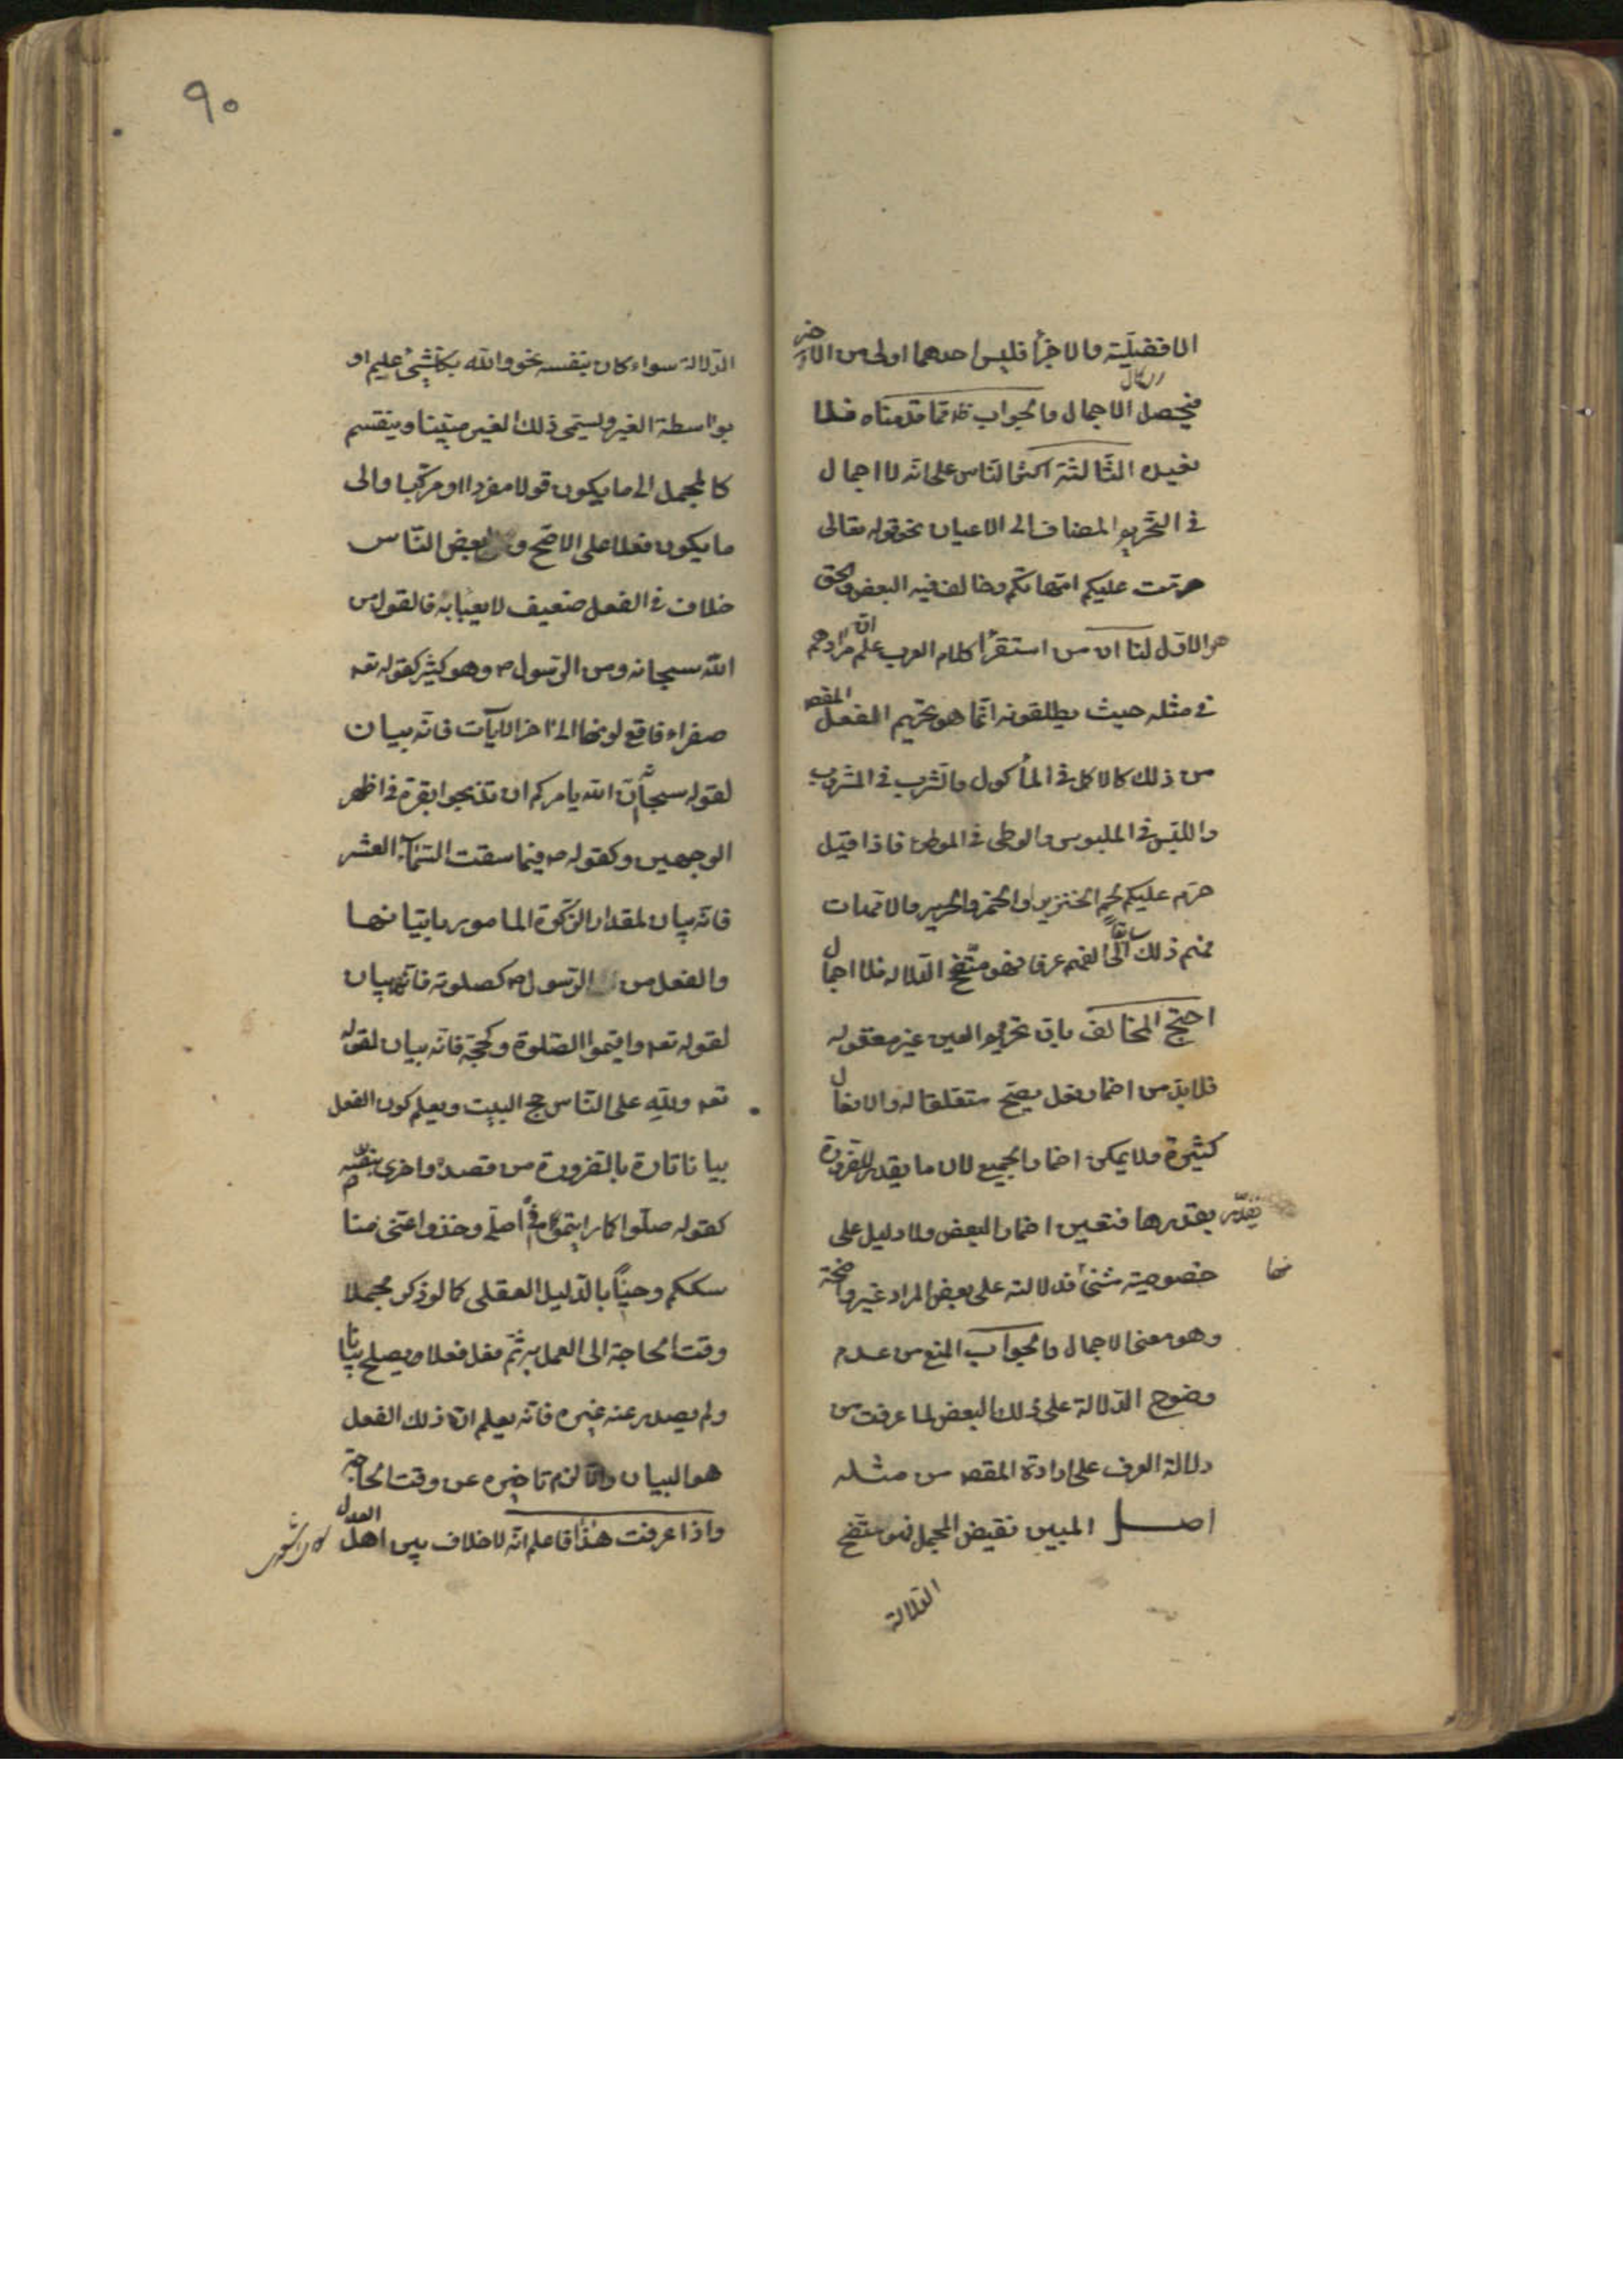 الافضلية والاجزأ فليس احدهما اولى من الاخر
فيحصل الاجمال والجواب ظ مما قدمناه فلا
نعيده الثالثة اكثر الناس على انه لا اجمال
في التحريم المضاف الى الاعيان نحو قوله تعالى
حرمت عليكم امهاتكم وخالف فيه البعض والحق
هو الاول لنا ان من استقرأ كلام العرب علم ان مرادهم
في مثله حيث يطلقونه انما هو تحريم الفعل المقص
من ذلك كالاكل في المأكول والشرب في المشروب
واللبس في الملبوس والوطى في الموطئ فاذا قيل
حرم عليكم لحم الخنزير والخمر والحرير والامهات
فهم ذلك سابقا الى الفهم عرفا فهو متضح الدلالة فلا اجمال
احتج المخالف بان تحريم العين غير معقول
فلا بد من اضمار فعل يصح متعلقا له والافعال
كثيرة ولا يمكن اضمار الجميع لان ما يقدر للضرورة
يقدر بقدرها فتعين اضمار البعض ولا دليل على
خصوصية شئ فدلالته على بعض المراد غير واضحة
منها
وهو معنى الاجمال والجواب المنع من عدم
وضوح الدلالة على ذلك البعض لما عرفت من
دلالة العرف على ارادة المقص من مثله
اصل المبين نقيض المجمل فهو متضح
الدلالة
٩٠
الدلالة سواء كان بنفسه نحو والله بكل شئ عليم او
بواسطة الغير ويسمى ذلك الغير مبينا وينقسم
كالمجمل الى ما يكون قولا مفردا او مركبا والى
ما يكون فعلا على الاصح و لبعض الناس
خلاف في الفعل ضعيف لا يعبا به فالقول من
الله سبحانه ومن الرسول ص وهو كثير كقوله تعه
صفراء فاقع لونها الى اخر الايات فانه بيان
لقوله سبحانه ان الله يامركم ان تذبحوا بقرة في اظهر
الوجهين وكقوله ص فيما سقت السماء العشر
فانه بيان لمقدار الزكوة المامور باتيانها
والفعل من الرسول ص كصلوته فانه بيان
لقوله تعه واقيموا الصلوة وكحجه فانه بيان لقوله
تعه ولله على الناس حج البيت ويعلم كون الفعل
بيانا تارة بالضرورة من قصده واخرى بنصه
كقوله صلوا كما رايتموني اصلي وخذوا عني منا
سككم وحينا بالدليل العقلي كما لو ذكر مجملا
وقت الحاجة الى العمل به ثم فعل فعلا يصلح بيانا
ولم يصدر عنه غيره فانه يعلم ان ذلك الفعل
هو البيان والا لزم تاخيره عن وقت الحاجة
واذا عرفت هذا فاعلم انه لا خلاف بين اهل العدل